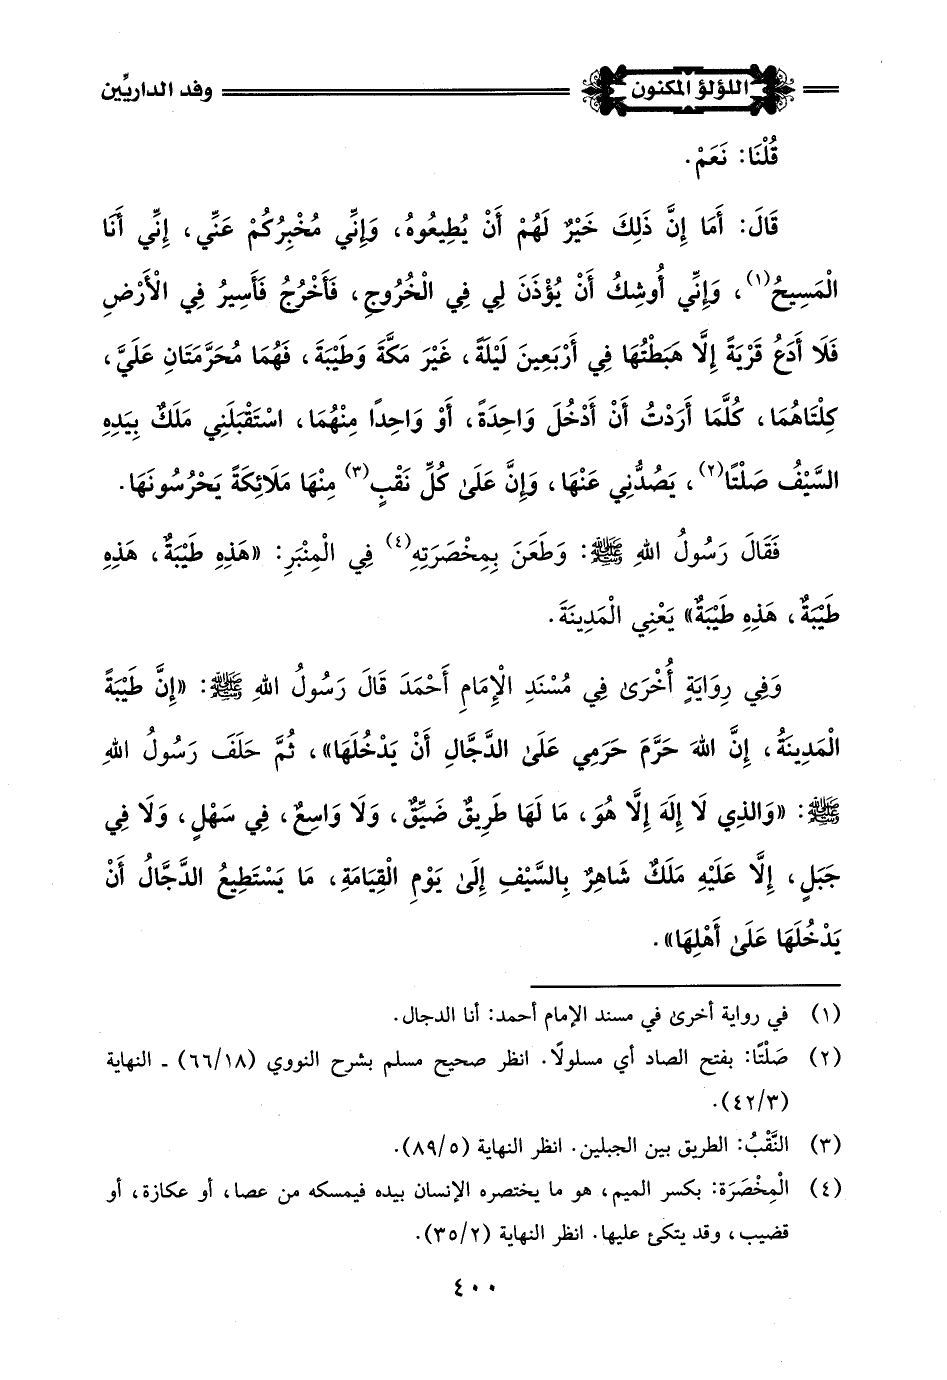 اللؤلؤ المكنون
وفد الداريِّين
قُلْنَا: نَعَمْ.
قَالَ: أَمَا إِنَّ ذَلِكَ خَيْرٌ لَهُمْ أَنْ يُطِيعُوهُ، وَإِنِّي مُخْبِرُكُمْ عَنِّي، إِنِّي أَنَا
الْمَسِيحُ(١)، وَإِنِّي أُوشِكُ أَنْ يُؤْذَنَ لِي فِي الْخُرُوجِ، فَأَخْرُجُ فَأَسِيرُ فِي الْأَرْضِ
فَلَا أَدَعُ قَرْيَةً إِلَّا هَبَطْتُهَا فِي أَرْبَعِينَ لَيْلَةً، غَيْرَ مَكَّةَ وَطَيْبَةَ، فَهُمَا مُحَرَّمَتَانِ عَلَيَّ،
كِلْتَاهُمَا، كُلَّمَا أَرَدْتُ أَنْ أَدْخُلَ وَاحِدَةً، أَوْ وَاحِدًا مِنْهُمَا، اسْتَقْبَلَنِي مَلَكٌ بِيَدِهِ
السَّيْفُ صَلْتًا(٢)، يَصُدُّنِي عَنْهَا، وَإِنَّ عَلَىٰ كُلِّ نَقْبٍ(٣) مِنْهَا مَلَائِكَةً يَحْرُسُونَهَا.
فَقَالَ رَسُولُ اللهِ ﷺ: وَطَعَنَ بِمِخْصَرَتِهِ(٤) فِي الْمِنْبَرِ: «هَذِهِ طَيْبَةٌ، هَذِهِ
طَيْبَةٌ، هَذِهِ طَيْبَةٌ» يَعْنِي الْمَدِينَةَ.
وَفِي رِوَايَةٍ أُخْرَىٰ فِي مُسْنَدِ الْإِمَامِ أَحْمَدَ قَالَ رَسُولُ اللهِ ﷺ: «إِنَّ طَيْبَةً
الْمَدِينَةُ، إِنَّ اللهَ حَرَّمَ حَرَمِي عَلَىٰ الدَّجَّالِ أَنْ يَدْخُلَهَا»، ثُمَّ حَلَفَ رَسُولُ اللهِ
ﷺ: «وَالذِي لَا إِلَهَ إِلَّا هُوَ، مَا لَهَا طَرِيقٌ ضَيِّقٌ، وَلَا وَاسِعٌ، فِي سَهْلٍ، وَلَا فِي
جَبَلٍ، إِلَّا عَلَيْهِ مَلَكٌ شَاهِرٌ بِالسَّيْفِ إِلَىٰ يَوْمِ الْقِيَامَةِ، مَا يَسْتَطِيعُ الدَّجَّالُ أَنْ
يَدْخُلَهَا عَلَىٰ أَهْلِهَا».
(١) في رواية أخرىٰ في مسند الإمام أحمد: أنا الدجال.
(٢) صَلْتًا: بفتح الصاد أي مسلولًا. انظر صحيح مسلم بشرح النووي (٦٦/١٨) ـ النهاية
(٤٢/٣).
(٣) النَّقْبُ: الطريق بين الجبلين. انظر النهاية (٨٩/٥).
(٤) الْمِخْصَرَة: بكسر الميم، هو ما يختصره الإنسان بيده فيمسكه من عصا، أو عكازة، أو
قضيب، وقد يتكئ عليها. انظر النهاية (٣٥/٢).
٤٠٠